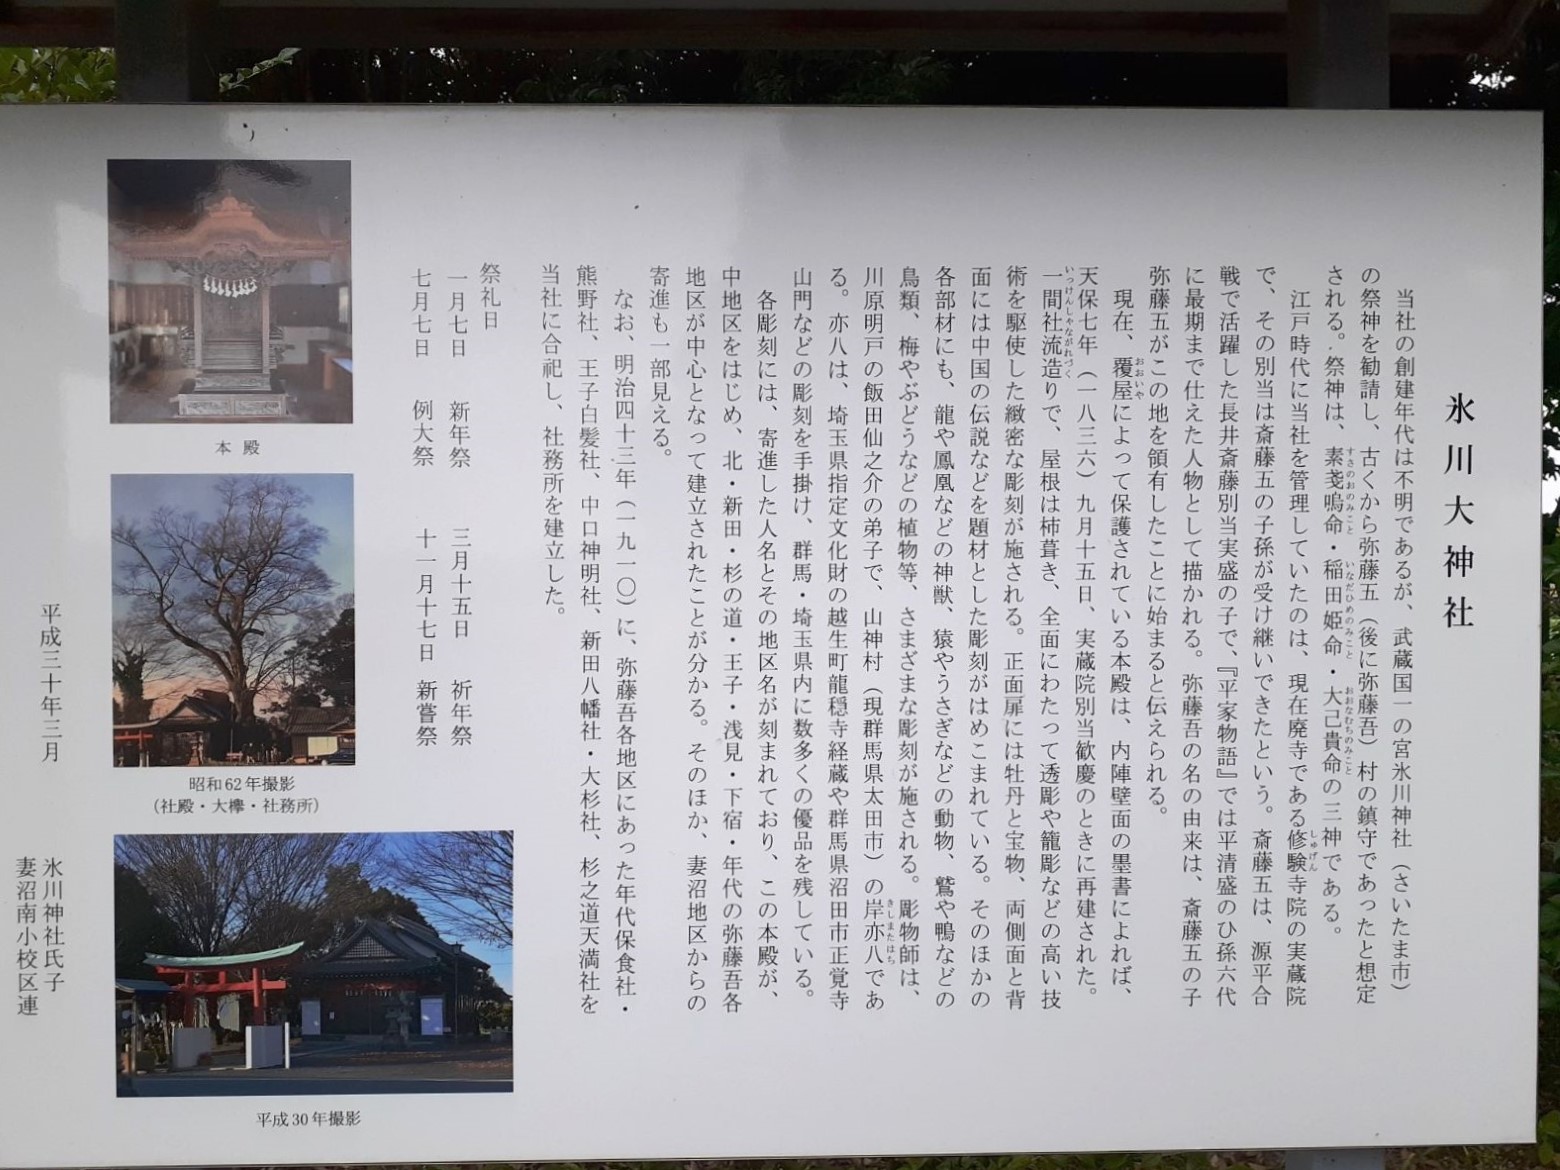 氷川大神社
当社の創建年代は不明であるが、武蔵国一の宮氷川神社（さいたま市）
の祭神を勧請し、古くから弥藤五（後に弥藤吾）村の鎮守であったと想定
される。祭神は、素戔嗚命・稲田姫命・大己貴命の三神である。
すさのおのみこと
いなだひめのみこと
おおなむちのみこと
江戸時代に当社を管理していたのは、現在廃寺である修験寺院の実蔵院
しゅげん
で、その別当は斎藤五の子孫が受け継いできたという。斎藤五は、源平合
戦で活躍した長井斎藤別当実盛の子で、『平家物語』では平清盛のひ孫六代
に最期まで仕えた人物として描かれる。弥藤吾の名の由来は、斎藤五の子
弥藤五がこの地を領有したことに始まると伝えられる。
現在、覆屋によって保護されている本殿は、内陣壁面の墨書によれば、
おおいや
天保七年（一八三六）九月十五日、実蔵院別当歓慶のときに再建された。
一間社流造りで、屋根は柿葺き、全面にわたって透彫や籠彫などの高い技
いっけんしゃながれづく
術を駆使した緻密な彫刻が施される。正面扉には牡丹と宝物、両側面と背
面には中国の伝説などを題材とした彫刻がはめこまれている。そのほかの
各部材にも、龍や鳳凰などの神獣、猿やうさぎなどの動物、鷲や鴨などの
鳥類、梅やぶどうなどの植物等、さまざまな彫刻が施される。彫物師は、
川原明戸の飯田仙之介の弟子で、山神村（現群馬県太田市）の岸亦八であ
きしまたはち
る。亦八は、埼玉県指定文化財の越生町龍穏寺経蔵や群馬県沼田市正覚寺
山門などの彫刻を手掛け、群馬・埼玉県内に数多くの優品を残している。
各彫刻には、寄進した人名とその地区名が刻まれており、この本殿が、
中地区をはじめ、北・新田・杉の道・王子・浅見・下宿・年代の弥藤吾各
地区が中心となって建立されたことが分かる。そのほか、妻沼地区からの
寄進も一部見える。
なお、明治四十三年（一九一〇）に、弥藤吾各地区にあった年代保食社・
熊野社、王子白髪社、中口神明社、新田八幡社・大杉社、杉之道天満社を
当社に合祀し、社務所を建立した。
祭礼日
一月七日　新年祭　三月十五日　祈年祭
七月七日　例大祭　十一月十七日　新嘗祭
本殿
昭和62年撮影
（社殿・大欅・社務所）
平成30年撮影
平成三十年三月
氷川神社氏子
妻沼南小校区連